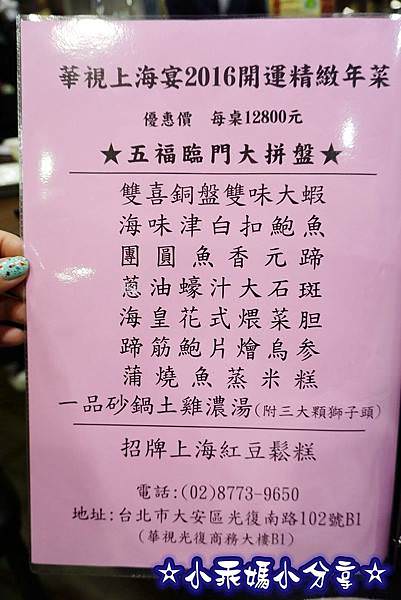 華視上海宴2016開運精緻年菜
優惠價 每桌12800元
★五福臨門大拼盤★
雙喜銅盤雙味大蝦
海味津白扣鮑魚
團圓魚香元蹄
蔥油蠔汁大石斑
海皇花式煨菜胆
蹄筋鮑片燴烏参
蒲燒魚蒸米糕
一品砂鍋土雞濃湯(附三大顆獅子頭)
招牌上海紅豆鬆糕
電話:(02)8773-9650
地址:台北市大安區光復南路102號B1
(華視光復商務大樓B1)
☆小乖媽小分享☆